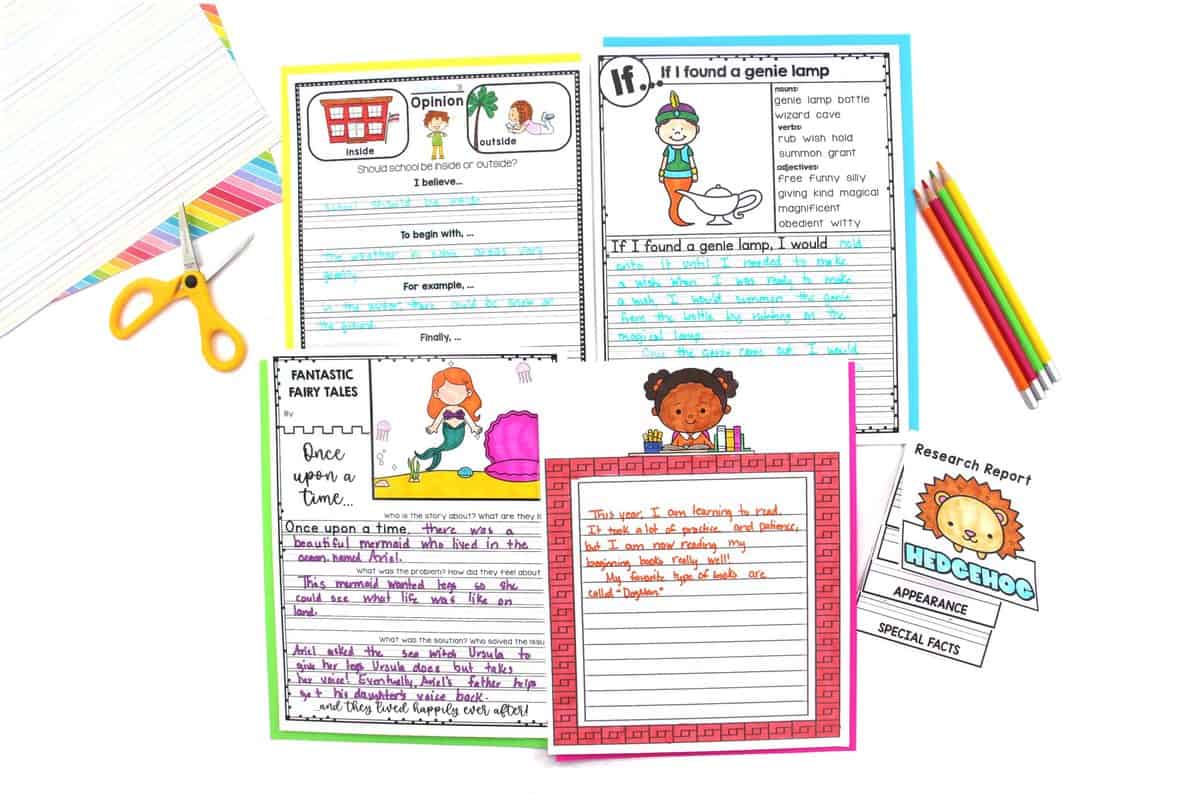 Opinion
inside
outside
Should school be inside or outside?
I believe...
school should be inside
To begin with, ...
The weather in some areas vary
greatly.
For example, ...
In the winter, there could be snow on
the ground.
Finally, ...
If...
If I found a genie lamp
nouns:
genie lamp bottle
wizard cave
verbs:
rub wish hold
summon grant
adjectives:
free funny silly
giving kind magical
magnificent
obedient witty
If I found a genie lamp, I would hold
onto it until I needed to make
a wish. When I was ready to make
a wish I would summon the genie
from the bottle by rubbing on the
magical lamp.
Once the genie comes out, I would
FANTASTIC
FAIRY TALES
By
Once
upon a
time...
Who is the story about? What are they li
Once upon a time, there was a
beautiful mermaid who lived in the
ocean named Ariel.
What was the problem? How did they feel about
This mermaid wanted legs so she
could see what life was like on
land.
What was the solution? Who solved the issu
Ariel asked the sea witch Ursula to
give her legs Ursula does but takes
her voice! Eventually, Ariel's father helps
get his daughter's voice back.
...and they lived happily ever after!
This year, I am learning to read.
It took a lot of practice and patience,
but I am now reading my
beginning books really well!
My favorite type of books are
called "DogMan"
Research Report
HEDGEHOG
APPEARANCE
SPECIAL FACTS